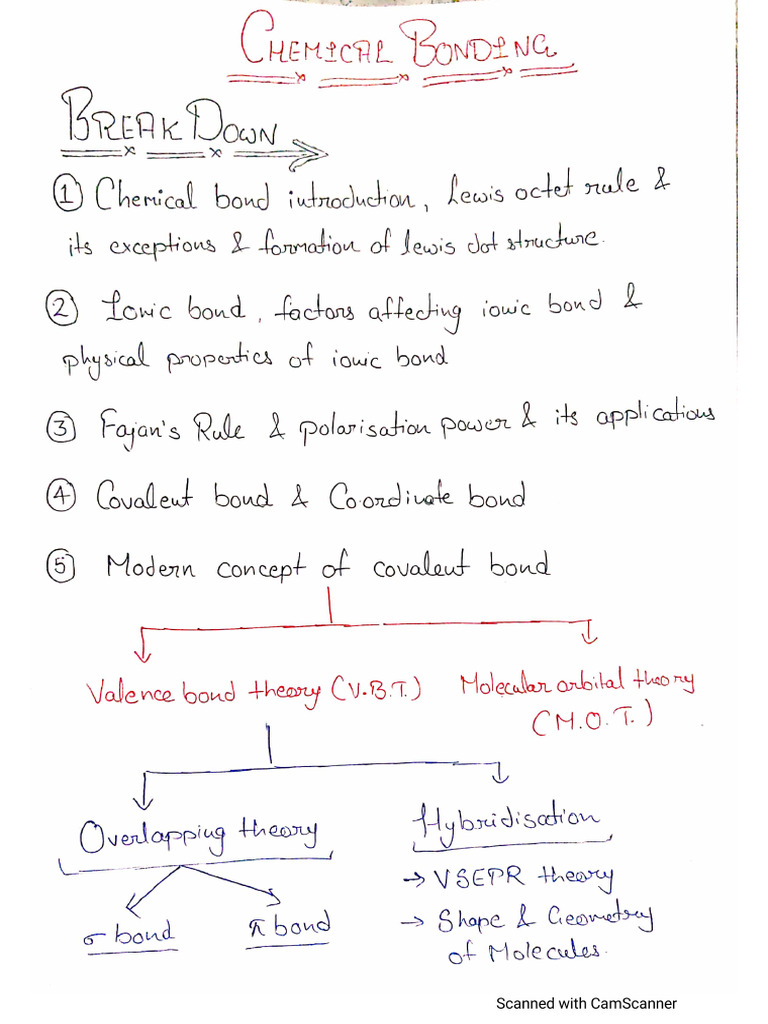 CHEMICAL BONDING
BREAK DOWN
① Chemical bond introduction, Lewis octet rule &
its exceptions & formation of lewis dot structure.
② Ionic bond, factors affecting ionic bond &
physical properties of ionic bond
③ Fajan's Rule & polarisation power & its applications
④ Covalent bond & Co-ordinate bond
⑤ Modern concept of covalent bond
Valence bond theory (V.B.T.)
Molecular orbital theory
(M.O.T.)
Overlapping theory
σ bond
π bond
Hybridisation
→ VSEPR theory
→ Shape & Geometry
of Molecules.
Scanned with CamScanner